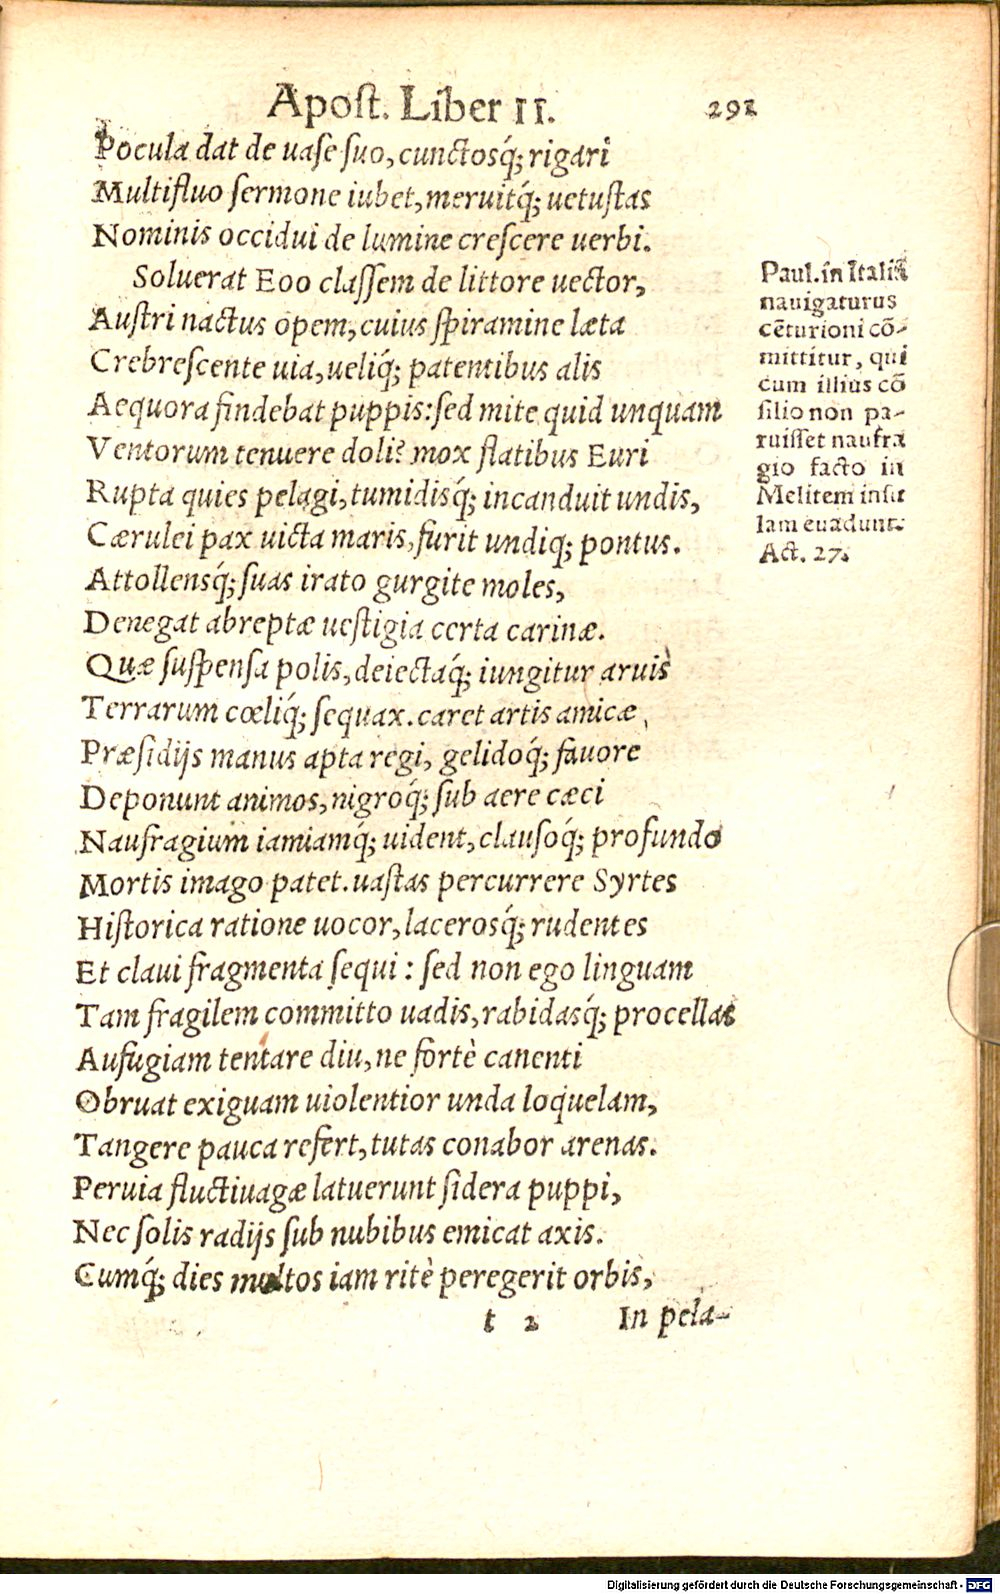 Apost. Liber II. 291
Pocula dat de uase suo, cunctosq́; rigari
Multifluo sermone iubet, meruitq́; uetustas
Nominis occidui de lumine crescere uerbi.
Soluerat Eoo classem de littore uector,
Austri nactus opem, cuius spiramine læta
Crebrescente uia, ueliq́; patentibus alis
Aequora findebat puppis: sed mite quid unquam
Ventorum tenuere doli? mox flatibus Euri
Rupta quies pelagi, tumidisq́; incanduit undis,
Cærulei pax uicta maris, furit undiq; pontus.
Attollensq́; suas irato gurgite moles,
Denegat abreptæ uestigia certa carinæ.
Quæ suspensa polis, deiectaq́; iungitur aruis
Terrarum cœliq́; sequax. caret artis amicæ,
Præsidijs manus apta regi, gelidoq́; fauore
Deponunt animos, nigroq́; sub aere cæci
Naufragium iamiamq́; uident, clausoq́; profundo
Mortis imago patet. uastas percurrere Syrtes
Historica ratione uocor, lacerosq́; rudentes
Et claui fragmenta sequi : sed non ego linguam
Tam fragilem committo uadis, rabidasq́; procellas
Aufugiam tentare diu, ne fortè canenti
Obruat exiguam uiolentior unda loquelam,
Tangere pauca refert, tutas conabor arenas.
Peruia fluctiuagæ latuerunt sidera puppi,
Nec solis radijs sub nubibus emicat axis.
Cumq́; dies multos iam ritè peregerit orbis,
t 2 In pela-
Paul. in Italiã
nauigaturus
cẽturioni cõ-
mittitur, qui
cum illius cõ
silio non pa-
ruisset naufra
gio facto in
Melitem insu
lam euadunt.
Act. 27.
Digitalisierung gefördert durch die Deutsche Forschungsgemeinschaft - DFG